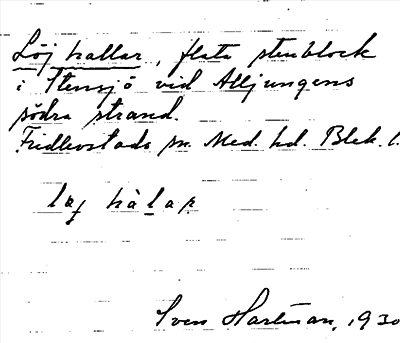 Löj hallar, flata stenblock
i Stensjö vid Alljungens
södra strand.
Fridlevstads sn. Med. hd. Blek. l.
hàlaʀ
Sven Hartman, 1930